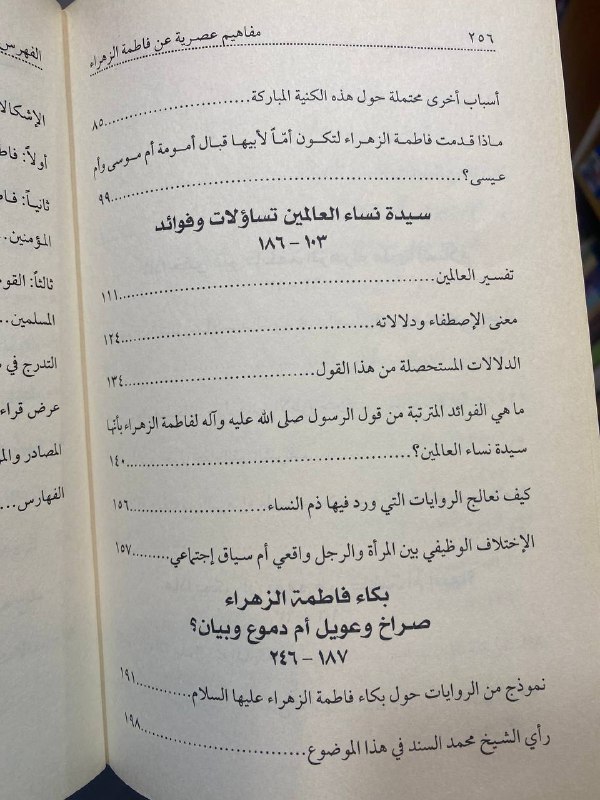 ٢٥٦
مفاهيم عصرية عن فاطمة الزهراء
أسباب أخرى محتملة حول هذه الكنية المباركة ٨٥
ماذا قدمت فاطمة الزهراء لتكون أمّاً لأبيها قبال أمومة أم موسى وأم
عيسى؟ ٩٩
سيدة نساء العالمين تساؤلات وفوائد
١٠٣ - ١٨٦
تفسير العالمين ١١١
معنى الإصطفاء ودلالاته ١٢٤
الدلالات المستحصلة من هذا القول ١٣٤
ما هي الفوائد المترتبة من قول الرسول صلى الله عليه وآله لفاطمة الزهراء بأنها
سيدة نساء العالمين؟ ١٤٠
كيف نعالج الروايات التي ورد فيها ذم النساء ١٥٦
الإختلاف الوظيفي بين المرأة والرجل واقعي أم سياق إجتماعي ١٥٧
بكاء فاطمة الزهراء
صراخ وعويل أم دموع وبيان؟
١٨٧ - ٢٤٦
نموذج من الروايات حول بكاء فاطمة الزهراء عليها السلام ١٩١
رأي الشيخ محمد السند في هذا الموضوع ١٩٨
الفهرس
أولاً:
ثانياً:
المؤمنين
ثالثاً: القو
المسلمين
التدرج في
عرض قراء
المصادر والمر
الفهارس